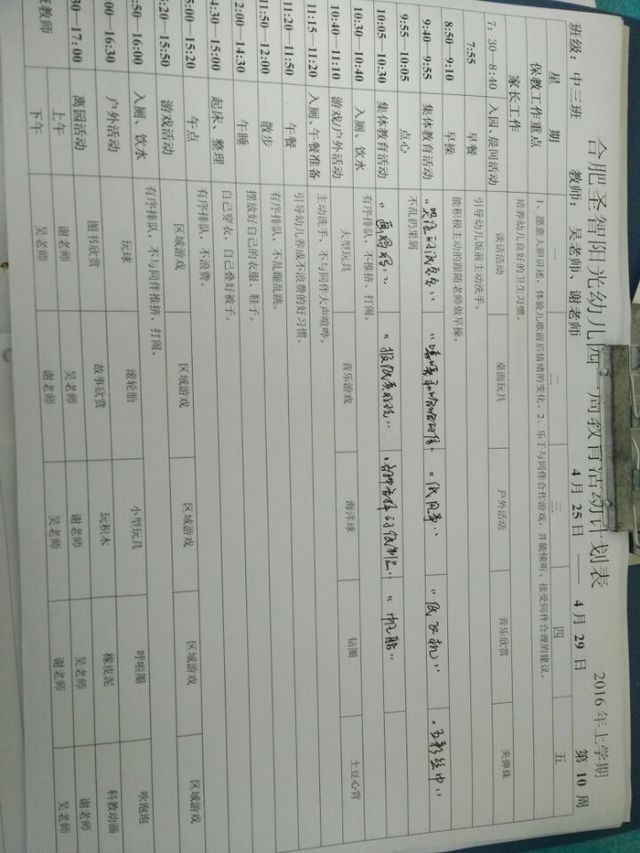 合肥圣智阳光幼儿园一周教育活动计划表 2016年上学期
班级：中三班 教师：吴老师、谢老师 4月25日——4月29日 第10周
星期 一 二 三 四 五
保教工作重点 1、愿意大胆讲述，体验儿歌前后情绪的变化。2、乐于与同伴合作游戏，并能倾听、接受同伴合理的建议。
家长工作 培养幼儿良好的卫生习惯。
7：30—8:40 入园、晨间活动 谈话活动 桌面玩具 户外活动 音乐欣赏 夹弹珠
7:55 早餐 引导幼儿饭前主动洗手。
8:50—9:10 早操 能积极主动的跟随老师做早操。
9:40—9:55 集体教育活动
9:55—10:05 点心 不乱扔果屑
10:05—10:30 集体教育活动
10:30—10:40 入厕、饮水 有序排队，不推挤、打闹。
10:40—11:10 游戏/户外活动 大型玩具 音乐游戏 海洋球 钻圈 土豆心营
11:15—11:20 入厕、午餐准备 主动洗手，不与同伴大声喧哗。
11:20—11:50 午餐 引导幼儿养成不浪费的好习惯。
11:50—12:00 散步 有序排队，不乱蹦乱跳。
2:00—14:30 午睡 摆放好自己的衣服、鞋子。
4:30—15:00 起床、整理 自己穿衣，自己叠好被子。
5:00—15:20 午点 有序排队，不浪费。
5:20—15:50 游戏活动 区域游戏 区域游戏 区域游戏 区域游戏 区域游戏
:50—16:00 入厕、饮水 有序排队，不与同伴推挤、打闹。
:00—16:30 户外活动 玩球 滚轮胎 小型玩具 呼啦圈 吹泡泡
:30—17:00 离园活动 图书欣赏 故事欣赏 玩积木 橡皮泥 科教动画
班教师 上午 谢老师 吴老师 谢老师 吴老师 谢老师
下午 吴老师 谢老师 吴老师 谢老师 吴老师